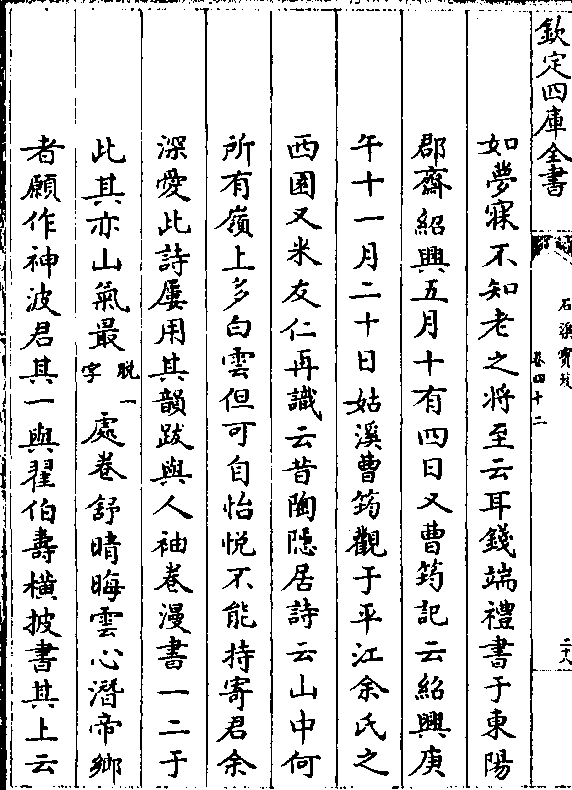 欽定四庫全書
石渠寶笈
卷四十二
二十八
如夢寐不知老之将至云耳錢端禮書于東陽
郡齋紹興五月十有四日又曹筠記云紹興庚
午十一月二十日姑溪曹筠觀于平江余氏之
西園又米友仁再識云昔陶隱居詩云山中何
所有嶺上多白雲但可自怡悅不能持寄君余
深愛此詩屢用其韻跋與人袖卷漫書一二于
此其亦山氣最脫一字處卷舒晴晦雲心潛帝鄉
者願作神波君其一與翟伯壽横披書其上云